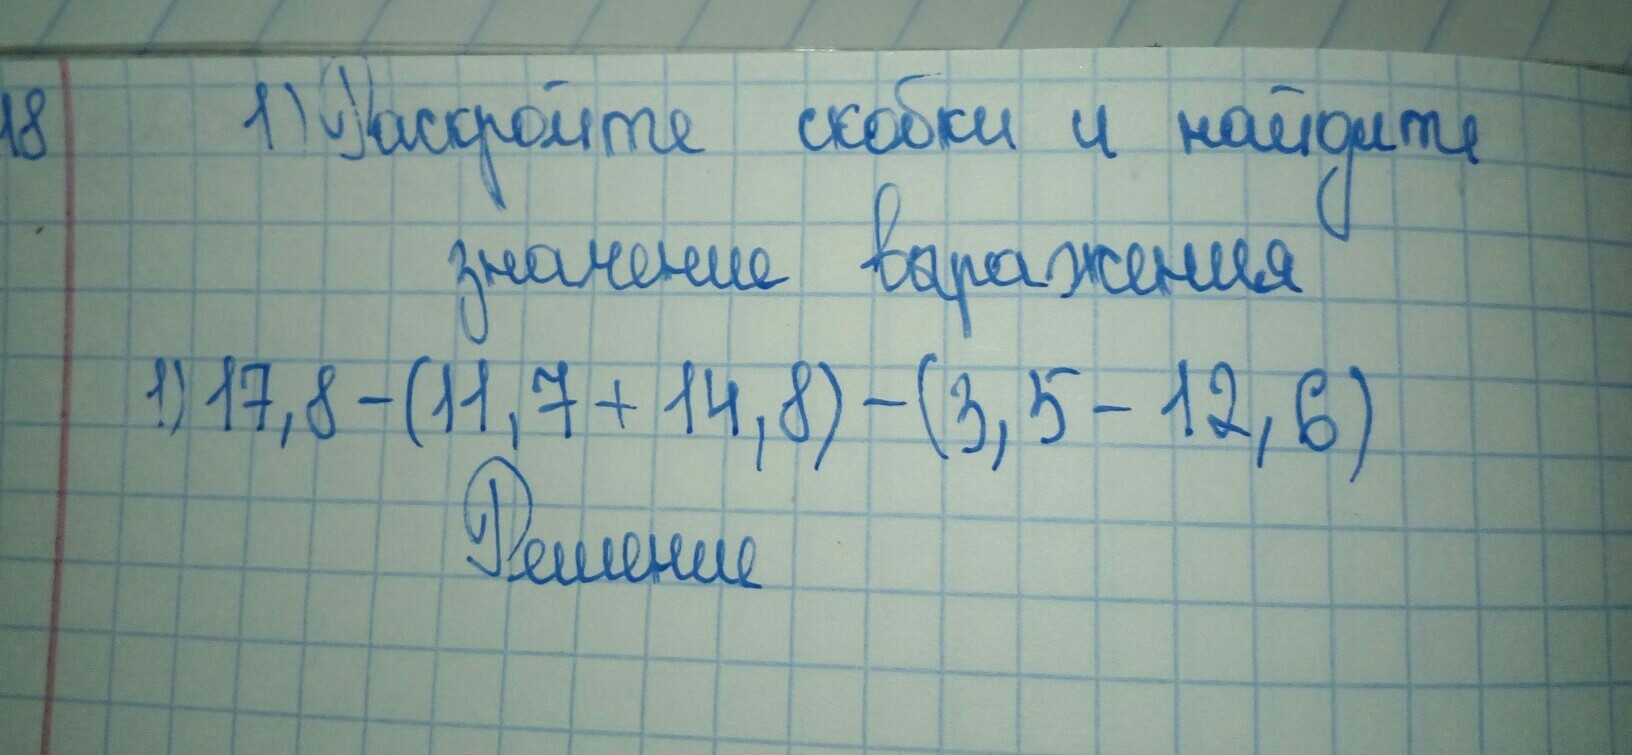 18 1) Раскройте скобки и найдите
значение выражения
1) 17,8-(11,7+14,8)-(3,5-12,6)
Решение